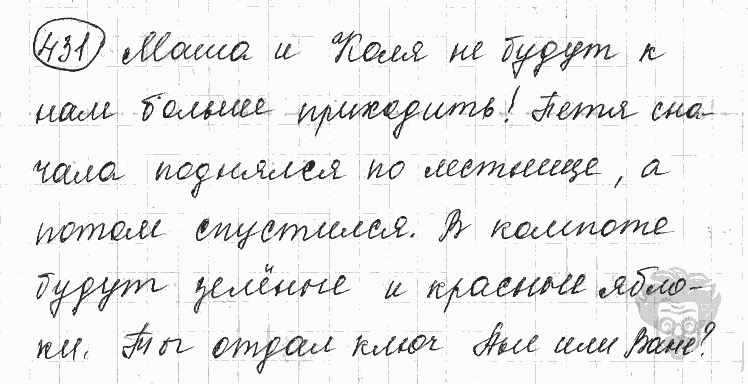 431 Маша и Коля не будут к
нам больше приходить! Петя сна-
чала поднялся по лестнице, а
потом спустился. В компоте
будут зелёные и красные ябло-
ки. Ты отдал ключ Яне или Ване?